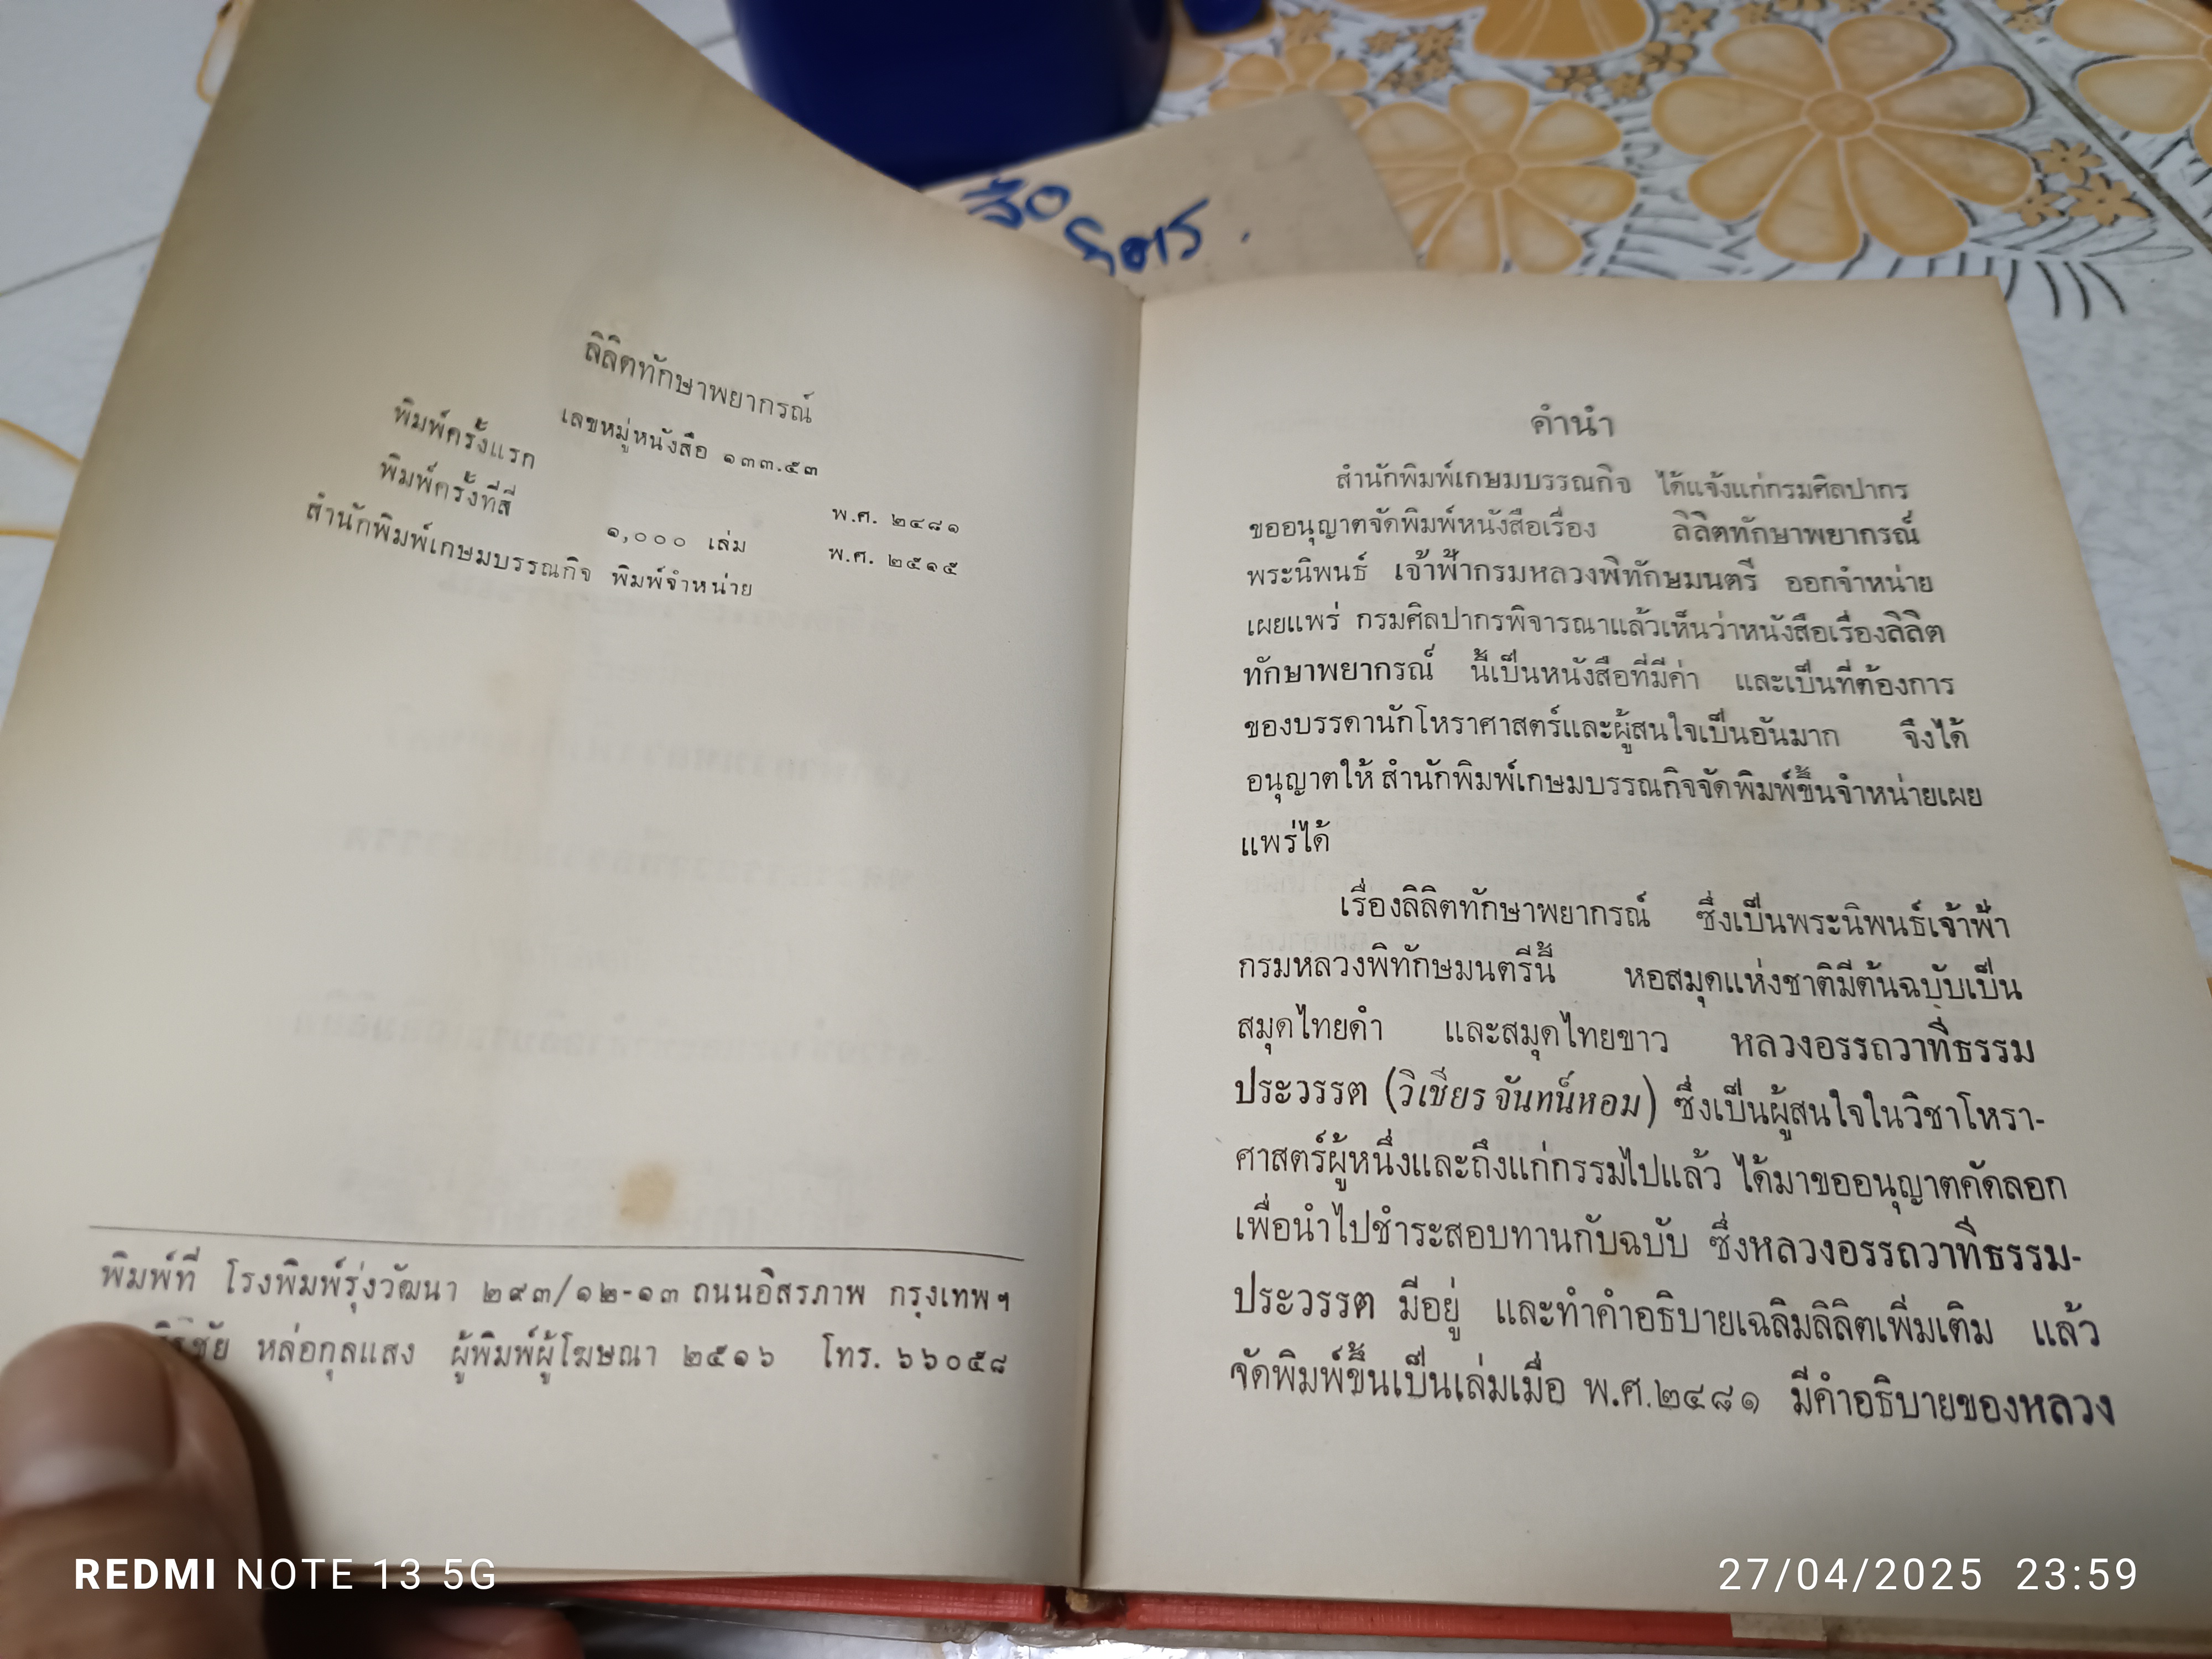 สือ
ลิลิตทักษาพยากรณ์
เลขหมู่หนังสือ ๑๓๓.๕๓
พิมพ์ครั้งแรก พ.ศ. ๒๔๘๑
พิมพ์ครั้งที่สี่ ๑,๐๐๐ เล่ม พ.ศ. ๒๕๑๕
สำนักพิมพ์เกษมบรรณกิจ พิมพ์จำหน่าย
พิมพ์ที่ โรงพิมพ์รุ่งวัฒนา ๒๙๓/๑๒-๑๓ ถนนอิสรภาพ กรุงเทพฯ
หล่อกุลแสง ผู้พิมพ์ผู้โฆษณา ๒๕๑๖ โทร. ๖๖๐๕๘
คำนำ
สำนักพิมพ์เกษมบรรณกิจ ได้แจ้งแก่กรมศิลปากร
ขออนุญาตจัดพิมพ์หนังสือเรื่อง ลิลิตทักษาพยากรณ์
พระนิพนธ์ เจ้าฟ้ากรมหลวงพิทักษมนตรี ออกจำหน่าย
เผยแพร่ กรมศิลปากรพิจารณาแล้วเห็นว่าหนังสือเรื่องลิลิต
ทักษาพยากรณ์ นี้เป็นหนังสือที่มีค่า และเป็นที่ต้องการ
ของบรรดานักโหราศาสตร์และผู้สนใจเป็นอันมาก จึงได้
อนุญาตให้ สำนักพิมพ์เกษมบรรณกิจจัดพิมพ์ขึ้นจำหน่ายเผย
แพร่ได้
เรื่องลิลิตทักษาพยากรณ์ ซึ่งเป็นพระนิพนธ์เจ้าฟ้า
กรมหลวงพิทักษมนตรีนี้ หอสมุดแห่งชาติมีต้นฉบับเป็น
สมุดไทยดำ และสมุดไทยขาว หลวงอรรถวาทีธรรม
ประวรรต (วิเชียร จันทน์หอม) ซึ่งเป็นผู้สนใจในวิชาโหรา-
ศาสตร์ผู้หนึ่งและถึงแก่กรรมไปแล้ว ได้มาขออนุญาตคัดลอก
เพื่อนำไปชำระสอบทานกับฉบับ ซึ่งหลวงอรรถวาทีธรรม-
ประวรรต มีอยู่ และทำคำอธิบายเฉลิมลิลิตเพิ่มเติม แล้ว
จัดพิมพ์ขึ้นเป็นเล่มเมื่อ พ.ศ.๒๔๘๑ มีคำอธิบายของหลวง
REDMI NOTE 13 5G
27/04/2025 23:59